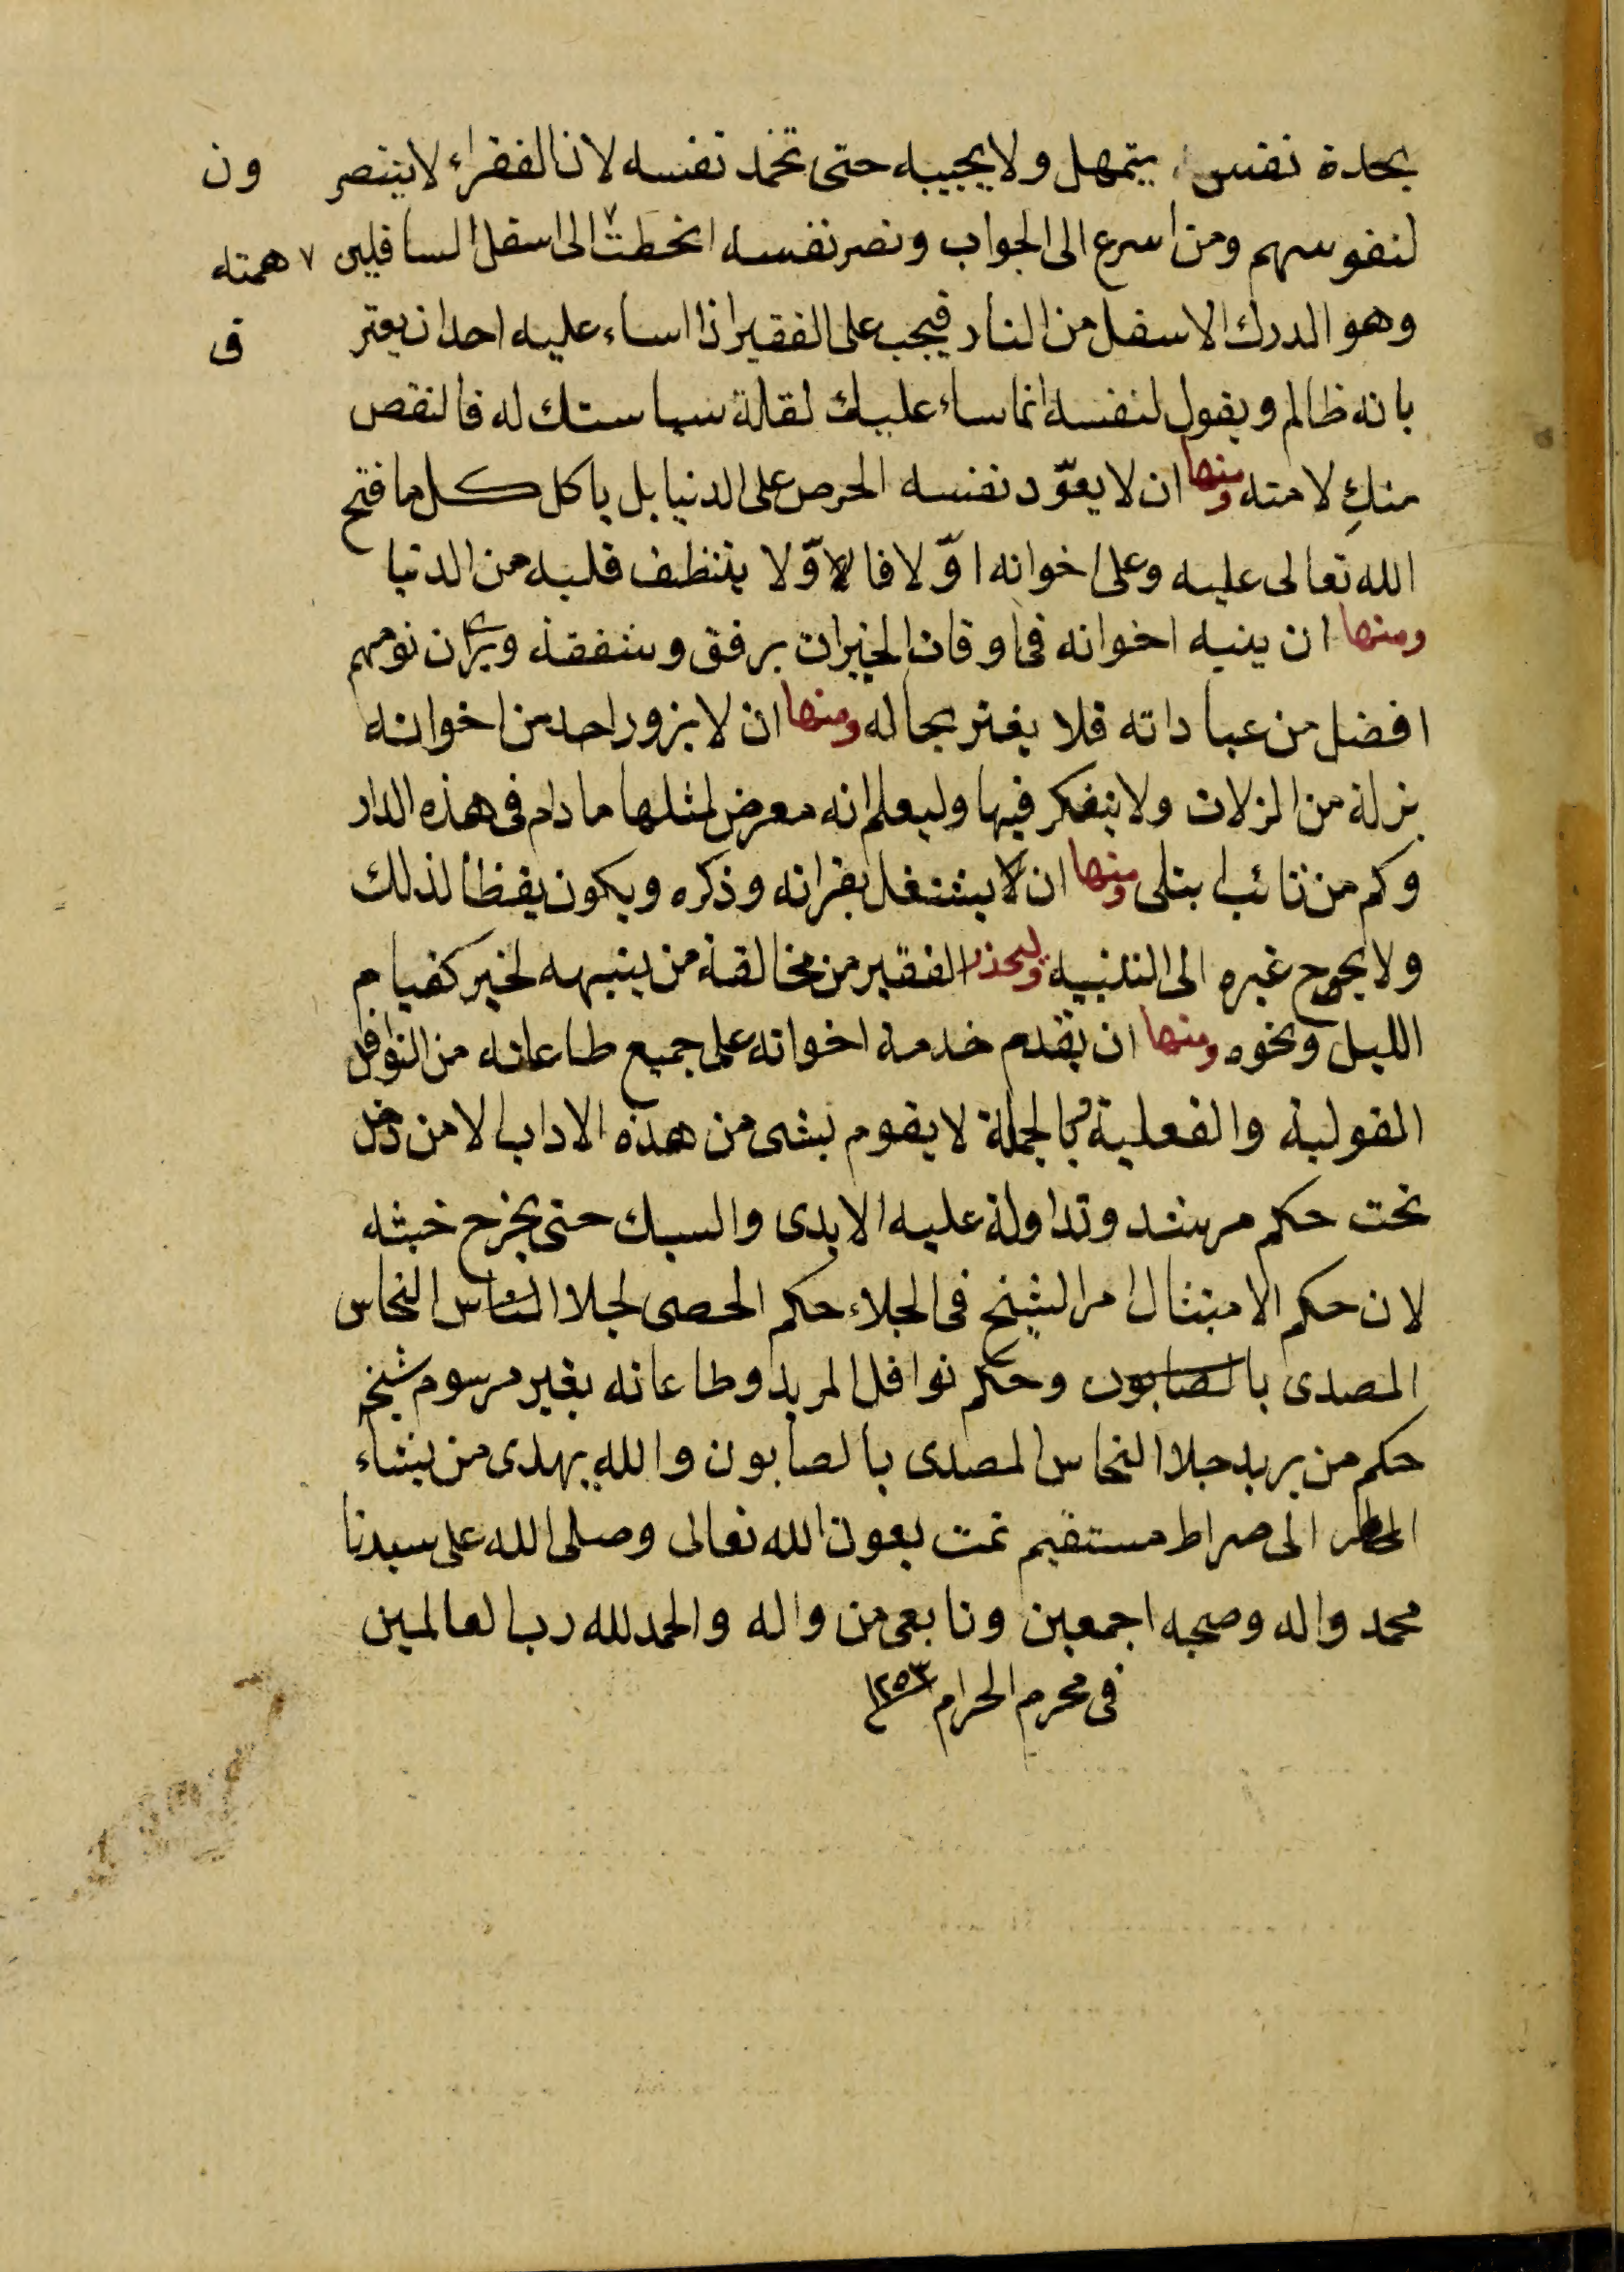 بحدة نفس يتمهل ولا يجيبه حتى تخمد نفسه لان الفقراء لا ينتصر ون
لنفوسهم ومن اسرع الى الجواب ونصر نفسه انحطت ٧ الى اسفل السافلين ٧ همته
وهو الدرك الاسفل من النار فيجب على الفقير اذا اساء عليه احد ان يعتر ف
بانه ظالم ويقول لنفسه انما ساء عليك لقلة سياستك له فالنقص
منك لا منه ومنها ان لا يعوّد نفسه الحرص على الدنيا بل ياكل كل ما فتح
الله تعالى عليه وعلى اخوانه اوّلا فالاوّلا يتنظف قلبه من الدنيا
ومنها ان ينبه اخوانه فى اوقات الخيرات برفق وشفقة ويرى ان نومهم
افضل من عباداته فلا يغتر بحاله ومنها ان لا يزور احد من اخوانه
بزلة من الزلات ولا يتفكر فيها وليعلم انه معرض لمثلها ما دام فى هذه الدار
وكم من تائب ابتلى ومنها ان لا يشتغل بقرانه وذكره ويكون يقظا لذلك
ولا يحوج غيره الى التنبيه وليحذر الفقير من مخالفة من ينبهه لخير كقيام
الليل ونحوه ومنها ان يقدم خدمة اخوانه على جميع طاعاته من النوافل
القولية والفعلية وبالجملة لا يقوم بشى من هذه الاداب الا من دخل
تحت حكم مرشد وتداولة عليه الايدى والسبك حتى يخرج خبثه
لان حكم الامتثال امر الشيخ فى الجلاء حكم الحصى لجلا النحاس
المصدى بالصابون وحكم نوافل المريد وطاعاته بغير مرسوم شيخ
حكم من يريد جلا النحاس المصدى بالصابون والله يهدى من يشاء
الى صراط مستقيم تمت بعون الله تعالى وصلى الله على سيدنا
محمد واله وصحبه اجمعين وتابعى من واله والحمد لله رب العالمين
فى محرم الحرام ١٢٥٣